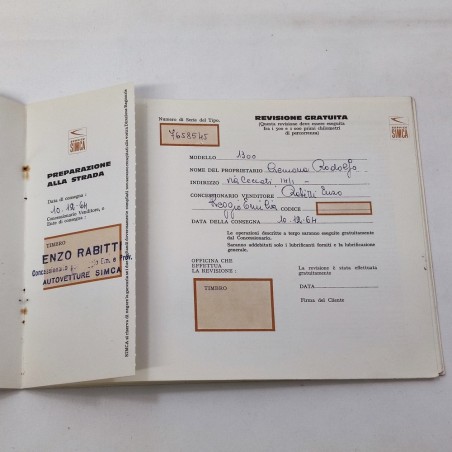 SIMCA
PREPARAZIONE
ALLA STRADA
Data di consegna :
10.12.64
Concessionario Venditore, a
fine di consegna :
TIMBRO
ENZO RABITTI
Concessionario
e Prov.
AUTOVETTURE SIMCA
Numero di Serie del Tipo.
7658545
REVISIONE GRATUITA
(Questa revisione deve essere eseguita
fra i 500 e 1 000 primi chilometri
di percorrenza)
SIMCA
MODELLO 1300
NOME DEL PROPRIETARIO Cremona Rodolfo
INDIRIZZO via
CONCESSIONARIO VENDITORE Rabitti Enzo
Reggio Emilia CODICE
DATA DELLA CONSEGNA 10.12.64
Le operazioni descritte a tergo saranno eseguite gratuitamente
dal Concessionario.
Saranno addebitati solo i lubrificanti forniti e la lubrificazione
generale.
OFFICINA CHE
EFFETTUA
LA REVISIONE :
TIMBRO
La revisione è stata effettuata
gratuitamente
DATA
Firma del Cliente